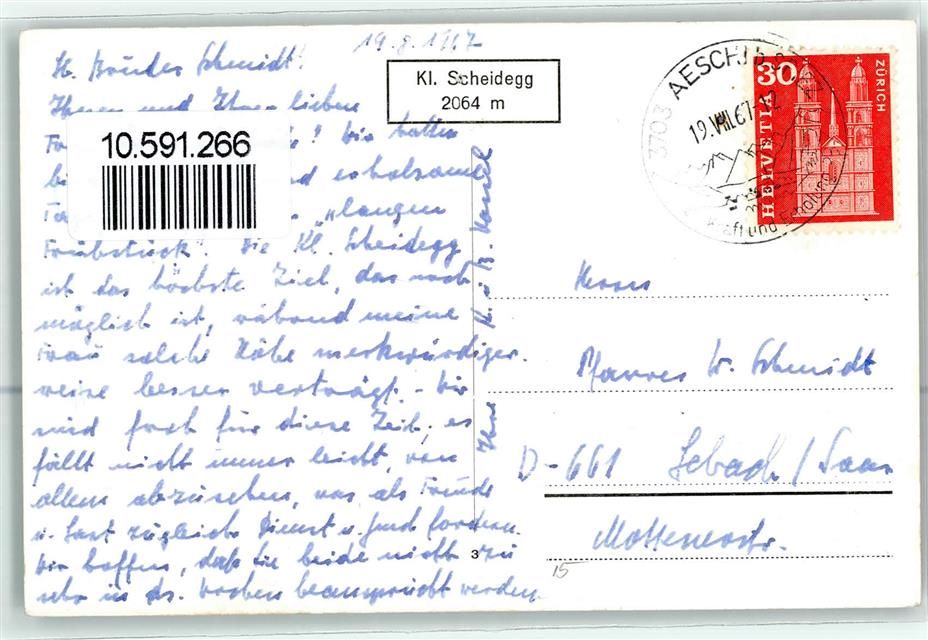 19.8.1967
Lb. Bruder Schmidt!
Ihnen und Ihrer lieben
wir hatten
erholsame
"langen
Frühstück". Die Kl. Scheidegg
ist das höchste Ziel, das noch
möglich ist, während meine
Frau solche Höhe merkwürdiger-
weise besser verträgt. - Wir
sind froh für diese Zeit; es
fällt nicht immer leicht, von
allem abzusehen, was als Freude
u. Last zugleich Dienst u. fordern.
Wir hoffen, daß Sie beide nicht zu
sehr in ds. Wochen beansprucht werden.
Ihre
10.591.266
Kl. Scheidegg
2064 m
3703 AESCHI
19.VIII.67-12
Kraft und Erholung
30
HELVETIA
ZÜRICH
Herrn
Pfarrer W. Schmidt
D-661 Lebach/Saar
Mottenerstr.
15
3